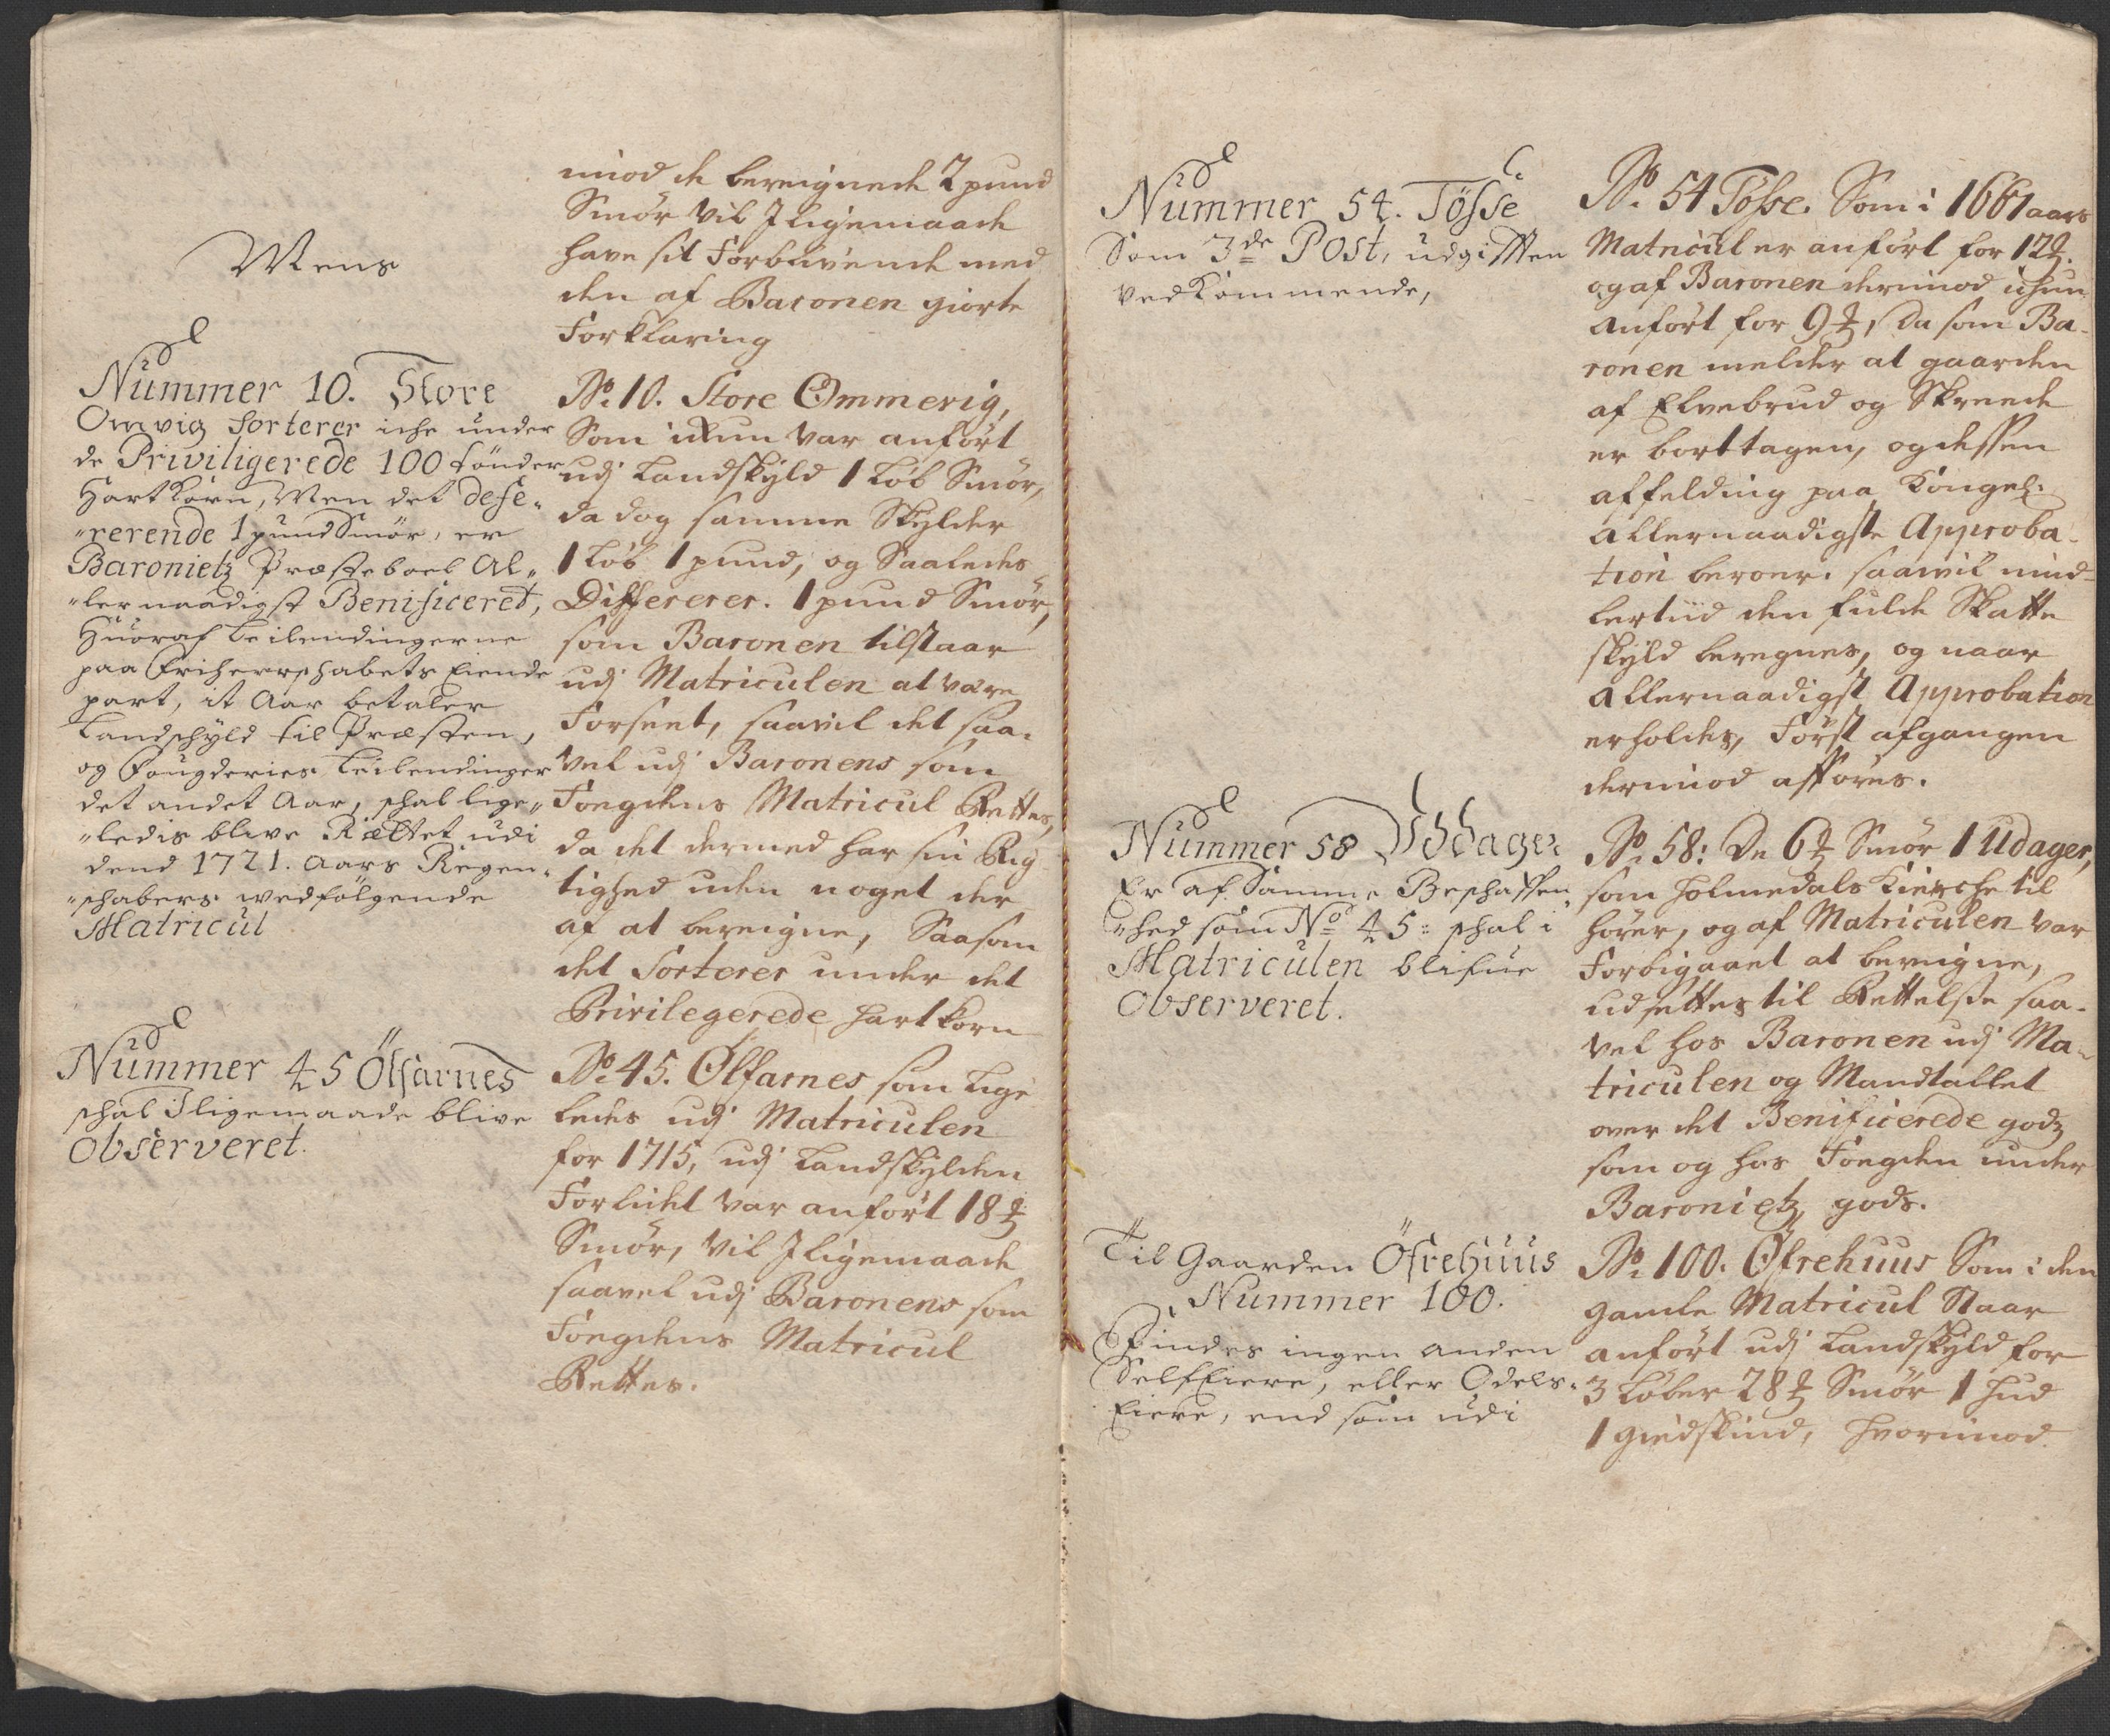 Mens
Nummer 10. Store
Omvig Sorterer iche under
de Priviligerede 100 tönder
Hart Korn, Men det defe-
"rerende 1 pund Smör, er
Baronietz Præsteboel Al„
„lernaadigst Benificeret,
Huoraf Leilendingerne
paa Friherrschabets Eiende
part, it Aar betaler
Landschyld til Præsten,
og Fougderies Leilendinger
det andet Aar, schal lige„
„ledis blive Rættet udi
dend 1721. Aars Regen„
„schabers wedfølgende
Matricul
Nummer 45 Ölfarnes
schal Iligemaade blive
Observeret.
imod de bereignede 2 pund
Smör vil Iligemaade
have sit Forblivende med
den af Baronen giorte
Forklaring
No. 10. Store Ommerig,
Som ickun var anfört
udj Landskyld 1 Löb Smör,
da dog samme Skylder
1 Löb 1 pund, og Saaledes
Differerer. 1 pund Smör,
som Baronen tilstaar
udj Matriculen at være
Forseet, saavil det saa-
vel udj Baronens som
Fougdens Matricul Rettes,
da det dermed har sin Rig
tighed uden noget der
af at bereigne, Saasom
det Sorterer under det
Privilegerede Hartkorn
No. 45. Ölfarnes som Lige
ledes udj Matriculen
for 1715, udj Landskylden
Forlidet var anfört 18 ℔
Smör, vil Iligemaade
saavel udj Baronens som
Fougdens Matricul
Rettes.
Nummer 54. Tösse
Som 3de Post, udgifften
vedkommende,
Nummer 58 Udager
Er af Samme Beschaffen„
„hed som No 45: schal i
Matriculen blifue
Observeret.
Til Gaarden Öfrehuus
Nummer 100.
Findes ingen anden
SelfEiere, eller Odels-
Eiere, end som udi
No. 54 Tösse. Som i 1661 aars
Matricul er anfört for 12 ℔.
og af Baronen derimod ichun
anfört for 9 ℔, da som Ba-
ronen melder at gaarden
af Elvebrud og Skreede
er borttagen, og dessen
affelding paa Kongel:
allernaadigste Approba-
tion beroer. saavil mid-
lertiid den fulde Skatte
skyld beregnes, og naar
allernaadigst Approbation
erholdes, Först afgangen
derimod afföres.
No. 58: De 6 ℔ Smör i Udager,
som Holmedals Kierche til
hörer, og af Matriculen var
Forbigaaet at bereigne,
udsettes til Rettelse saa-
vel hos Baronen udj Ma-
triculen og Mandtallet
over det Benificerede godz
som og hos Fougden under
Baronietz gods.
No. 100. Öfrehuus Som i den
gamle Matricul Staar
anfört udj Landskyld for
3 Löber 28 ℔ Smör 1 Hud
1 giedskind, Hvorimod